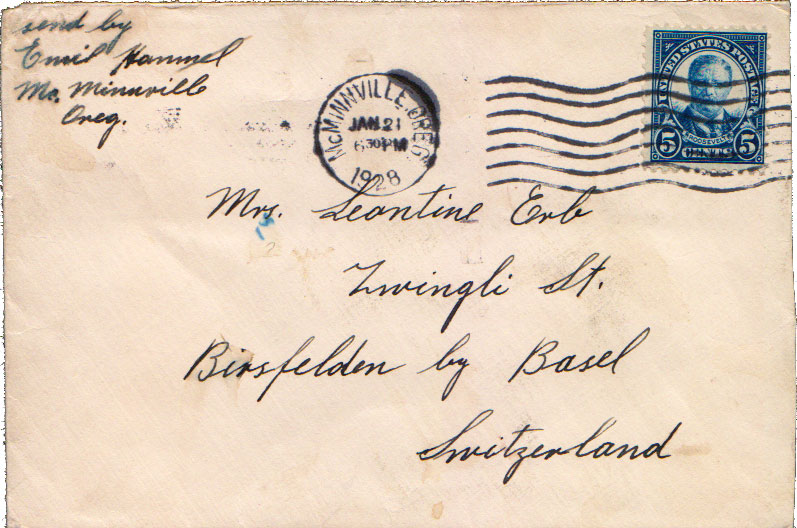 send by
Emil Hammel
Mc. Minnville
Oreg.
McMINNVILLE. OREG.
JAN 21
6 30 PM
1928
UNITED STATES POSTAGE
ROOSEVELT
5 CENTS 5
Mrs. Leontine Erb
Zwingli St.
Birsfelden by Basel
Switzerland